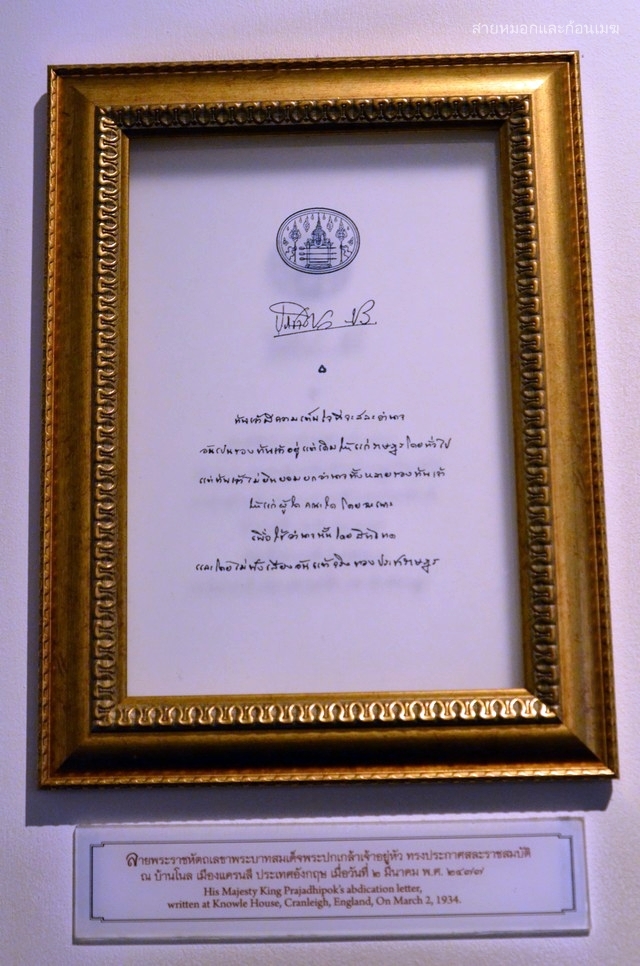 สายหมอกและก้อนเมฆ
ข้าพเจ้ามีความเต็มใจที่จะสละอำนาจ
อันเป็นของข้าพเจ้าอยู่แต่เดิมให้แก่ราษฎรโดยทั่วไป
แต่ข้าพเจ้าไม่ยินยอมยกอำนาจทั้งหลายของข้าพเจ้า
ให้แก่ผู้ใด คณะใด โดยฉะเพาะ
เพื่อใช้อำนาจนั้นโดยสิทธิขาด
และโดยไม่ฟังเสียงอันแท้จริงของประชาราษฎร
ลายพระราชหัตถเลขาพระบาทสมเด็จพระปกเกล้าเจ้าอยู่หัว ทรงประกาศสละราชสมบัติ
ณ บ้านโนล เมืองแครนลี ประเทศอังกฤษ เมื่อวันที่ ๒ มีนาคม พ.ศ. ๒๔๗๗
His Majesty King Prajadhipok's abdication letter,
written at Knowle House, Cranleigh, England, On March 2, 1934.